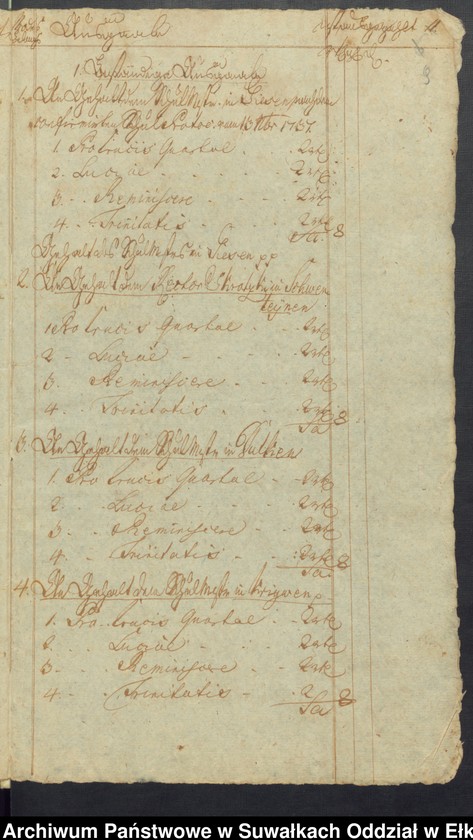 Ausgaabe
1. Beständige Ausgaabe
1. An Gehalt dem Schul Mstr. in Giesen
confirmirten Schul Protoc. vom 13 Nbr 1737.
1. Pro Crucis Quartal . 2 rtl
2. Luciae - - - 2 rtl
3 - Reminiscere - 2 rtl
4. - Trinitatis - 2 rtl
Sa 8
Gehalt des Schulmstrs in Giesen pp
2. An Gehalt dem Rector in Schwen
teinen
1 Pro Crucis Quartal - 2 rtl
2 - Luciae - - 2 rtl
3 - Reminiscere - - 2 rtl
4. - Trinitatis - 2 rtl
Sa 8
3. An Gehalt dem Schul Mstr in
1. Pro Crucis Quartal - 2 rtl
2 - Luciae - - 2 rtl
3 - Reminiscere - 2 rtl
4 - Trinitatis - 2 rtl 8
Sa
4. An Gehalt dem Schul Mstr in
1. Pro Crucis Quartal - 2 rtl
2 - Luciae - - 2 rtl
3 - Reminiscere - 2 rtl
4. - Trinitatis - 2 8
Sa
Archiwum Państwowe w Suwałkach Oddział w Ełk